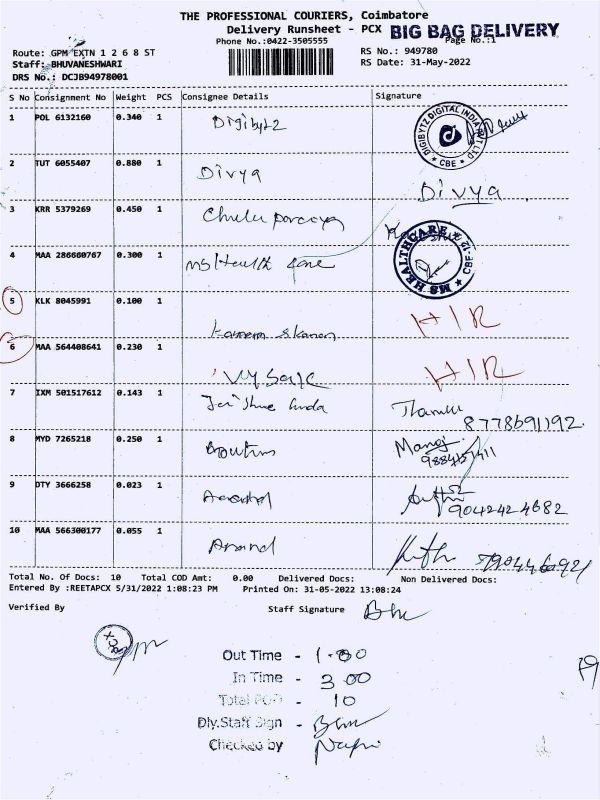 THE PROFESSIONAL COURIERS, Coimbatore
Delivery Runsheet - PCX BIG BAG DELIVERY
Phone No.:0422-3505555 Page No.:1
Route: GPM EXTN 1 2 6 8 ST RS No.: 949780
Staff: BHUVANESHWARI RS Date: 31-May-2022
DRS No.: DCJB94978001
S No Consignment No Weight PCS Consignee Details Signature
1 POL 6132160 0.340 1 Digibytz
DIGIBYTZ DIGITAL INDIA PVT LTD * CBE *
2 TUT 6055407 0.880 1 Divya Divya
3 KRR 5379269 0.450 1
4 MAA 286660767 0.300 1 MS Health care
MS HEALTHCARE * CBE-12 *
5 KLK 8045991 0.100 1 HIR
6 MAA 564408641 0.230 1 HIR
7 IXM 501517612 0.143 1 8778691192
8 MYD 7265218 0.250 1 Manoj
9 DTY 3666258 0.023 1 9042424682
10 MAA 566300177 0.055 1 Anand
Total No. Of Docs: 10 Total COD Amt: 0.00 Delivered Docs: Non Delivered Docs:
Entered By :REETAPCX 5/31/2022 1:08:23 PM Printed On: 31-05-2022 13:08:24
Verified By Staff Signature
Out Time - 1.00
In Time - 3.00
Total POD - 10
Dly.Staff Sign -
Checked by